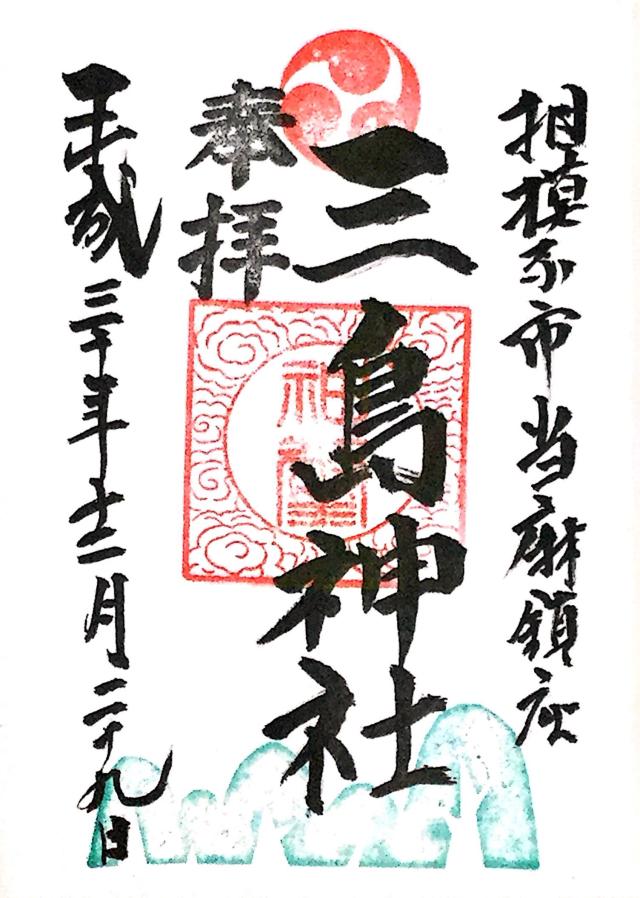 相模原市当麻鎮座
奉拝
三島神社
平成三十年十二月二十九日